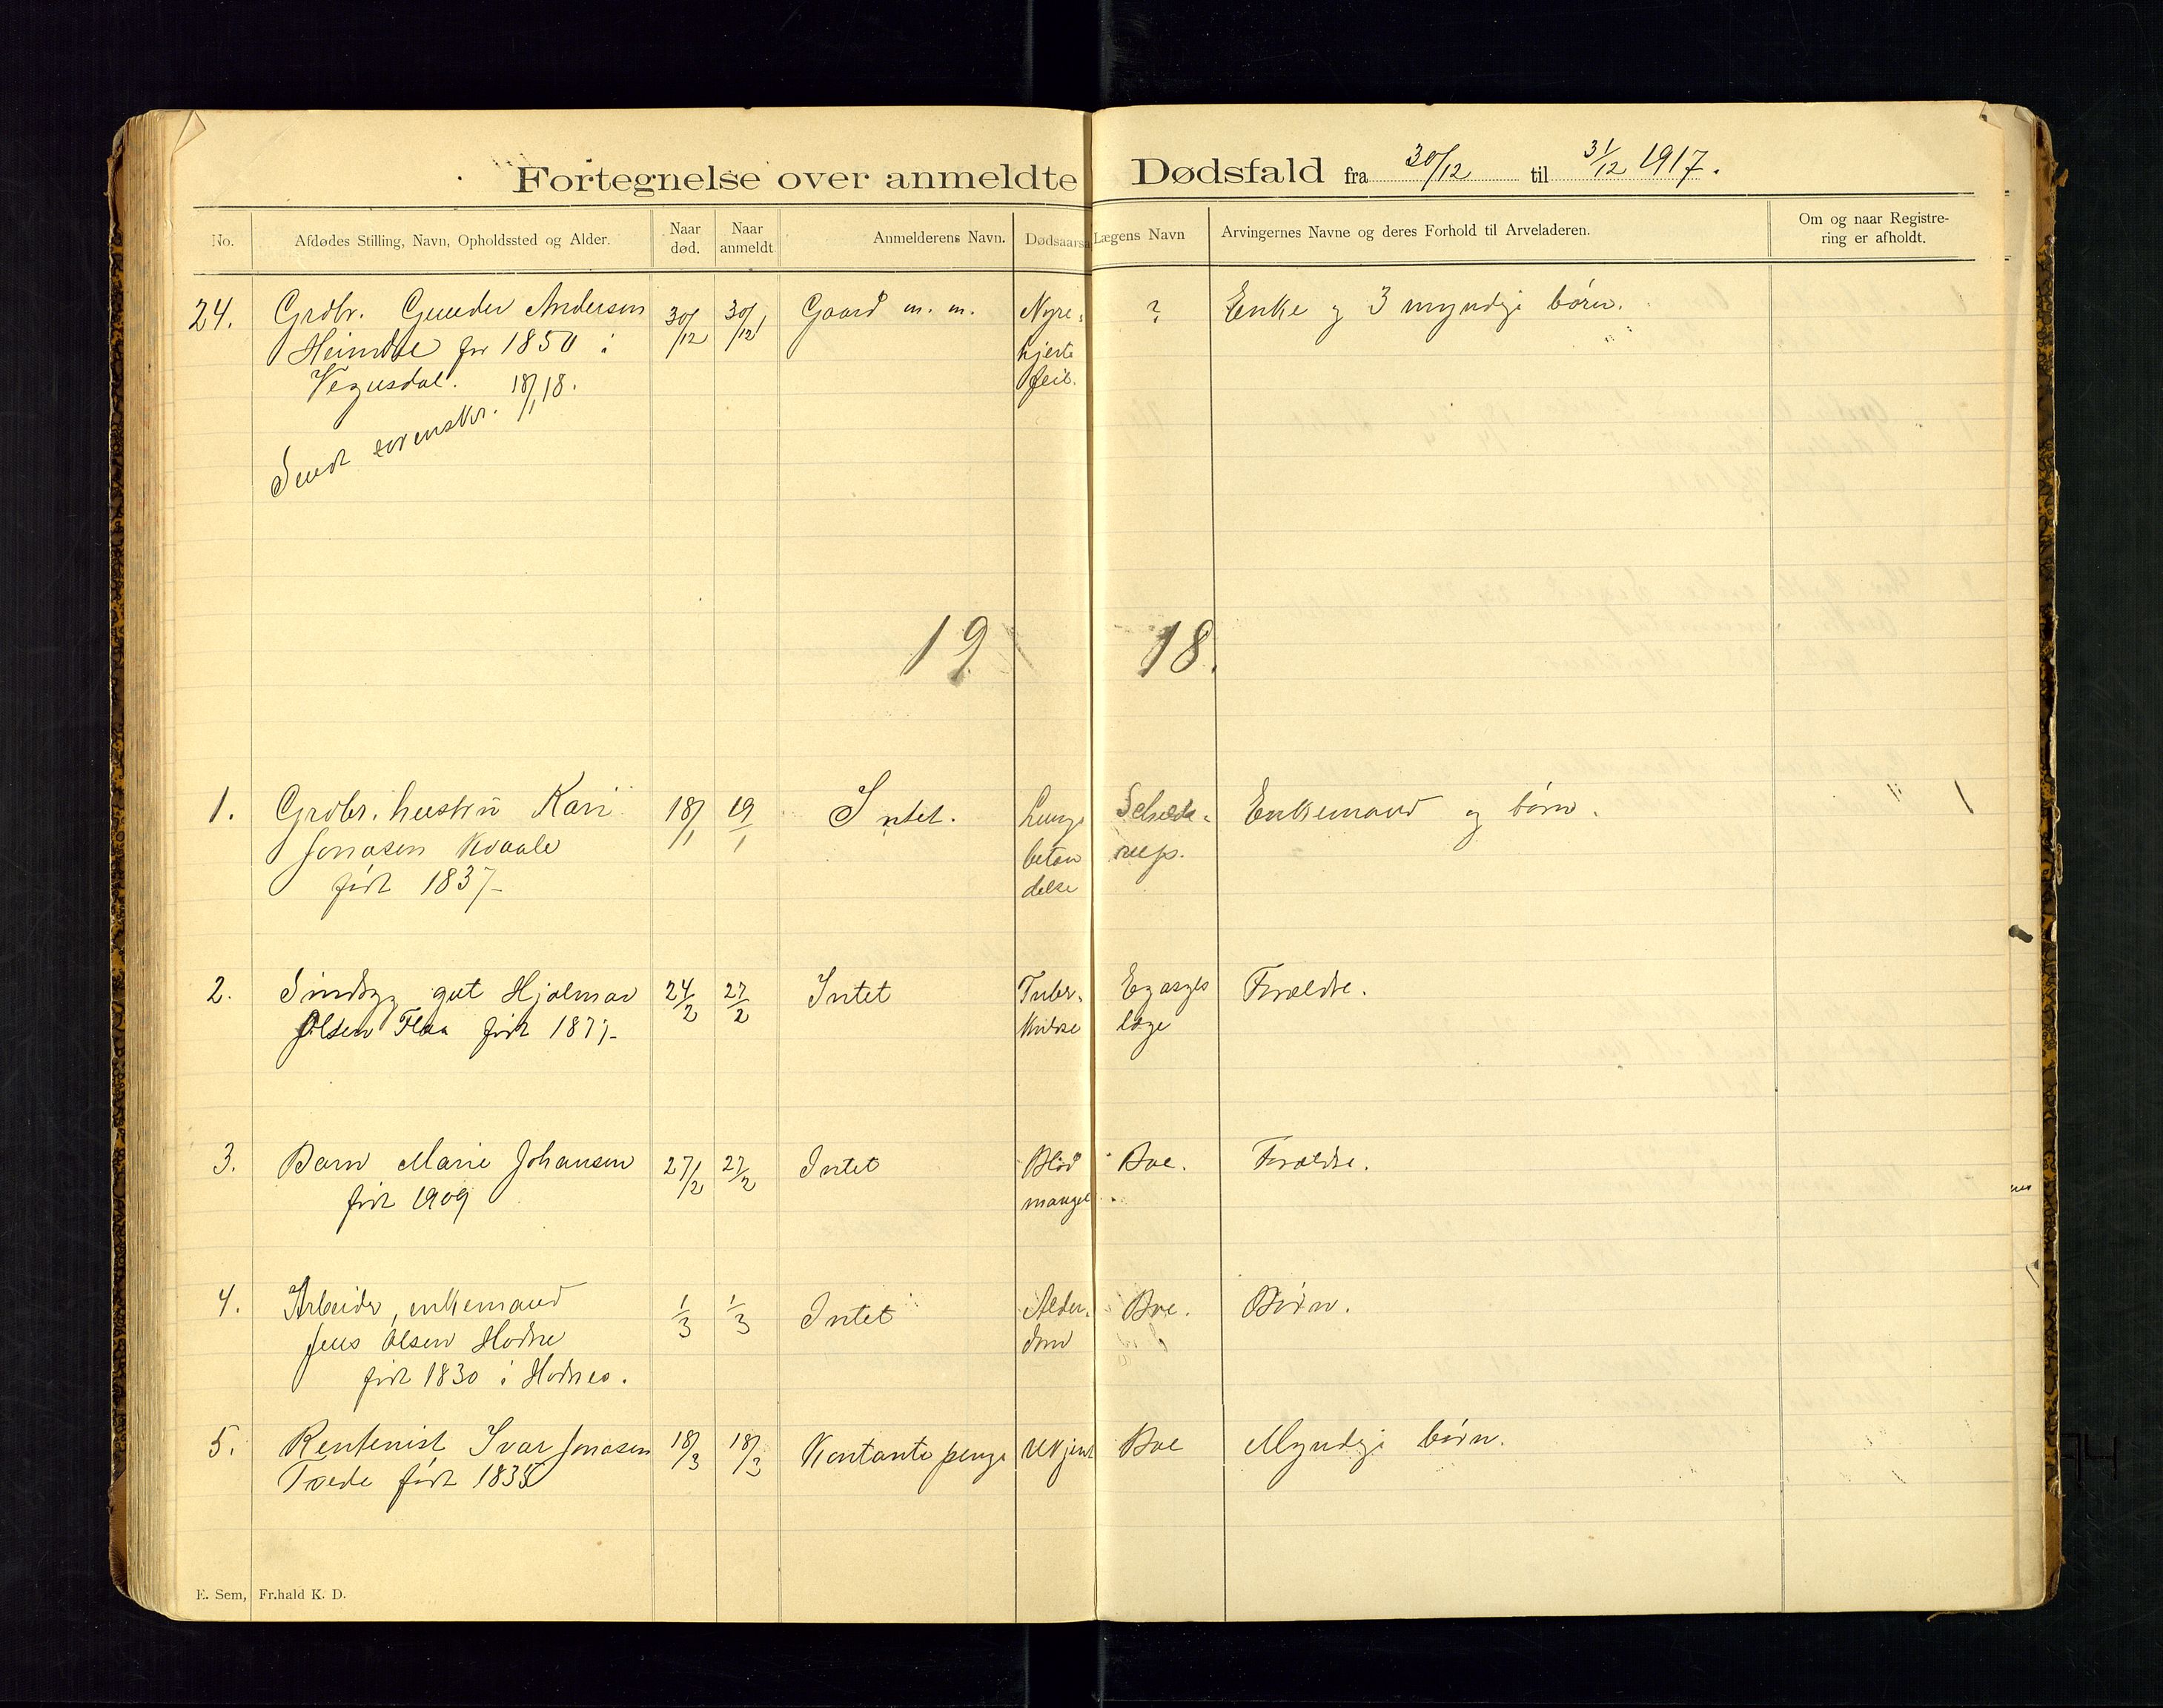 Fortegnelse over anmeldte Dødsfald fra 30/12 til 31/12 1917.
No. Afdødes Stilling, Navn, Opholdssted og Alder. Naar død. Naar anmeldt Anmelderens Navn. Dødsaarsa Lægens Navn Arvingernes Navne og deres Forhold til Arveladeren. Om og naar Registre-
ring er afholdt.
24. Grdbr. Gunder Andersen 30/12 30/12 Gaard m. m. Nyre- ? Enke og 3 myndige børn.
Heimdal før 1850 i hjerte
Vegusdal. feil.
Sendt sorenskr. 18/1 18.
19 18.
1. Grdbr. hustru Kari 18/1 19/1 Intet. Lunge Scheldе- Enkemand og børn.
Jonasen Kvaale betæn rup.
født 1837 delse
2. Sindsyg gut Hjalmar 24/2 27/2 Intet Tuber- Eg asyls Forældre.
Olsen Flaa født 1877 kulose læge
3. Barn Marie Johansen 27/2 27/2 Intet Blod Boe. Forældre.
født 1909 mangel
4. Arbeider, enkemand 1/3 1/3 Intet Alder- Boe. Børn.
Jens Olsen Hodne dom
født 1830 i Hodnes.
5. Rentenist Ivar Jonasen 18/3 18/3 Kontante penge Ukjent Boe Myndige børn.
Tvede født 1835
E. Sem, Fr.hald K. D.